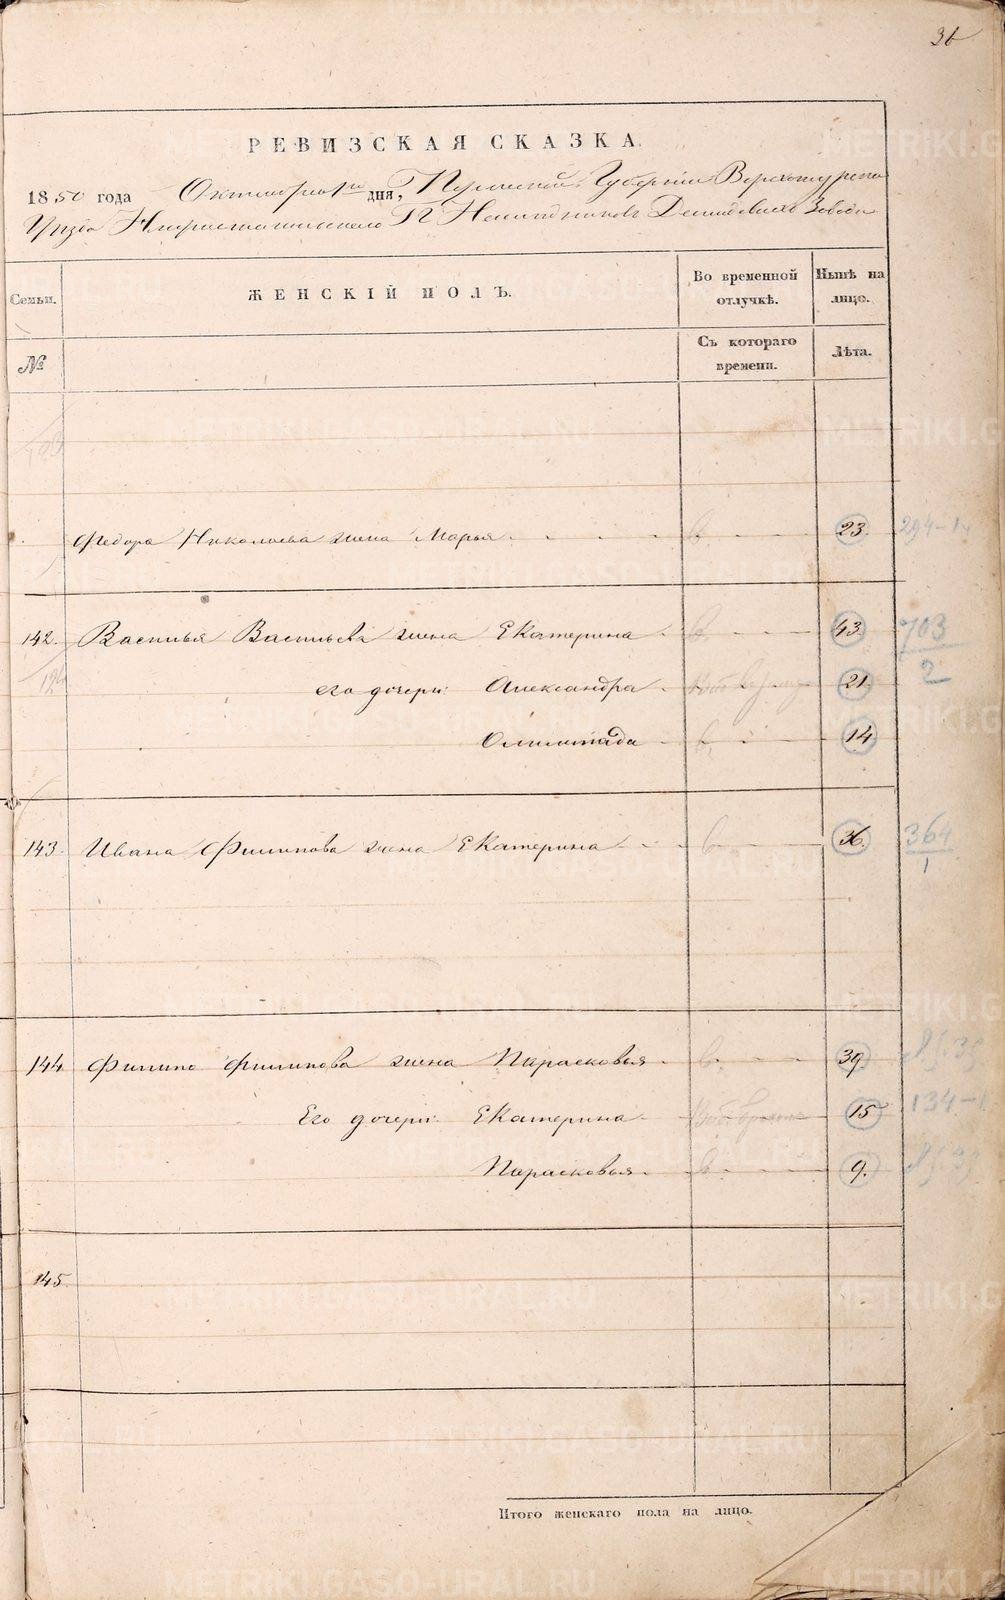 36
РЕВИЗСКАЯ СКАЗКА.
1850 года Октября дня, Пермской Губернии Верхотурскаго
Уезда Нижнетагильскаго Г Наследников Демидовых Завода
Семьи. ЖЕНСКІЙ ПОЛЪ. Во временной отлучкѣ. Нынѣ на лицо.
№ Съ котораго времени. Лѣта.
Федора Николаева жена Марья 23. 294-1
142. Василья Васильева жена Екатерина 43. 703
его дочери: Александра 21. 2
Олимпиада 14
143. Ивана Филипова жена Екатерина 36. 364
1
144 Филипа Филипова жена Парасковья 39.
Его дочери: Екатерина 15 134-1
Парасковья 9.
145.
Итого женскаго пола на лицо.
METRIKI.GASO-URAL.RU